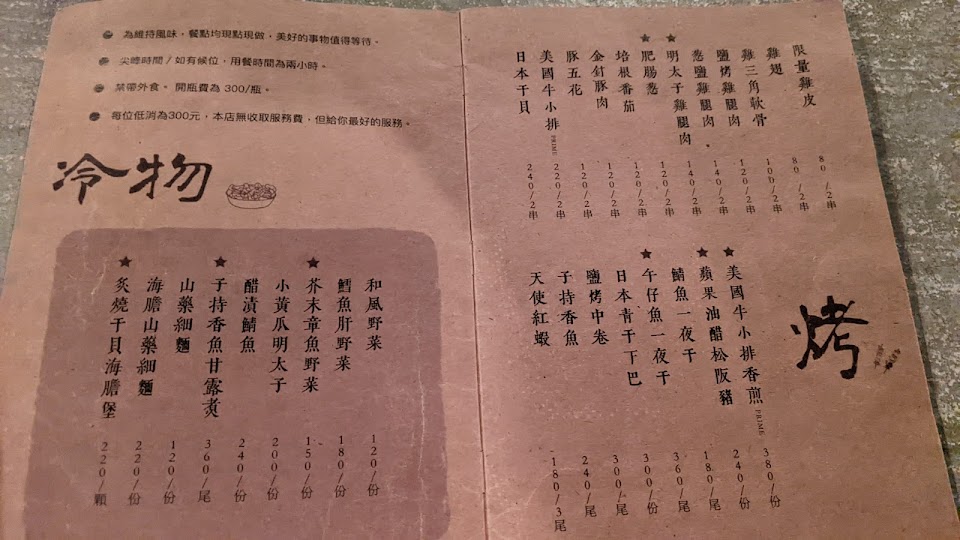 為維持風味，餐點均現點現做，美好的事物值得等待。
尖峰時間 / 如有候位，用餐時間為兩小時。
禁帶外食。 開瓶費為 300/瓶。
每位低消為300元，本店無收取服務費，但給你最好的服務。
冷物
和風野菜 120/份
鱈魚肝野菜 180/份
★ 芥末章魚野菜 150/份
小黃瓜明太子 200/份
醋漬鯖魚 240/份
★ 子持香魚甘露煮 360/尾
山藥細麵 120/份
海膽山藥細麵 220/份
★ 炙燒干貝海膽堡 220/顆
限量雞皮 80/2串
雞翅 80/2串
雞三角軟骨 100/2串
鹽烤雞腿肉 120/2串
蔥鹽雞腿肉 140/2串
★ 明太子雞腿肉 140/2串
★ 肥腸蔥 120/2串
培根番茄 120/2串
金針豚肉 120/2串
豚五花 120/2串
美國牛小排 PRIME 220/2串
日本干貝 240/2串
烤
★ 美國牛小排香煎 PRIME 380/份
★ 蘋果油醋松阪豬 240/份
鯖魚一夜干 180/尾
★ 午仔魚一夜干 360/尾
日本青干下巴 300/份
鹽烤中卷 300/尾
子持香魚 240/尾
天使紅蝦 180/3尾